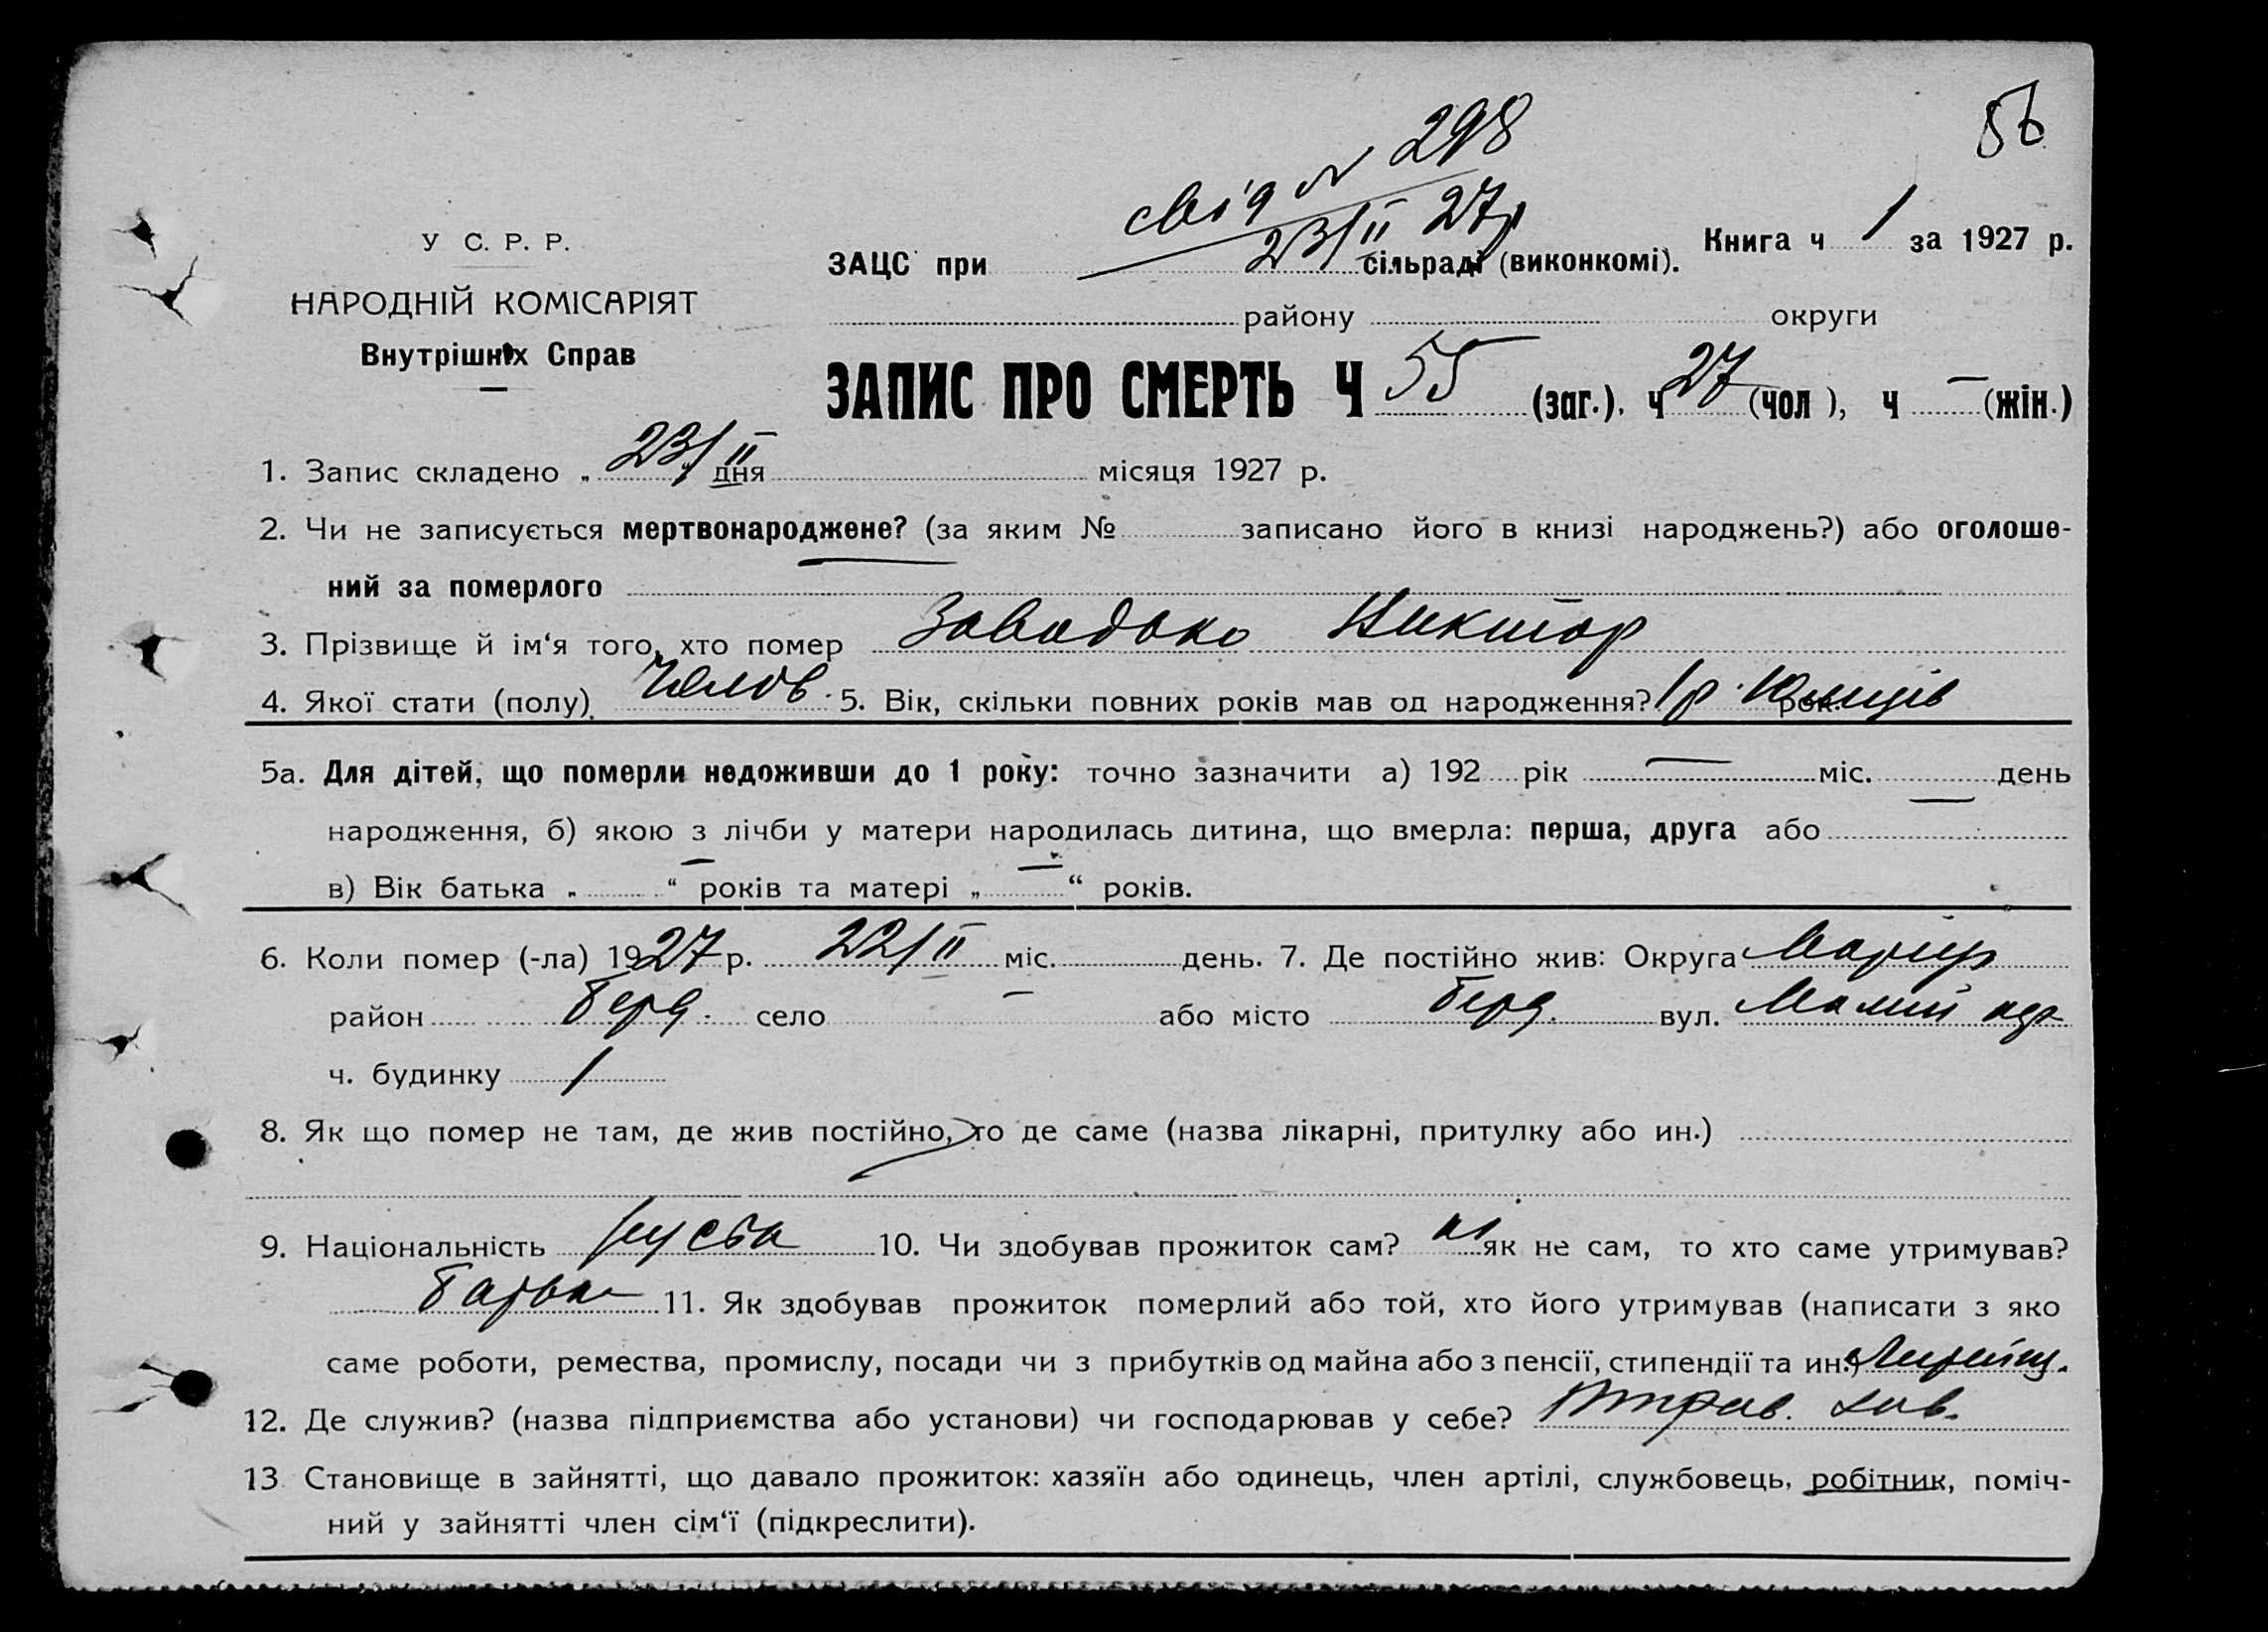 56
свід № 298
23/II 27р
У С. Р. Р.
НАРОДНІЙ КОМІСАРІЯТ
Внутрішніх Справ
ЗАЦС при сільраді (виконкомі). Книга ч 1 за 1927 р.
району округи
ЗАПИС ПРО СМЕРТЬ Ч 55 (заг.). ч 27 (чол ), ч — (жін.)
1. Запис складено „ 23/II дня місяця 1927 р.
2. Чи не записується мертвонароджене? (за яким № записано його в книзі народжень?) або оголоше-
ний за померлого —
3. Прізвище й ім‘я того, хто помер Виктор
4. Якої стати (полу) Чолов. 5. Вік, скільки повних років мав од народження? 1 р. рок.
5а. Для дітей, що померли недоживши до 1 року: точно зазначити а) 192 рік — міс. день
народження, б) якою з лічби у матери народилась дитина, що вмерла: перша, друга або —
в) Вік батька „ — “ років та матері „ — “ років.
6. Коли помер (-ла) 1927 р. 22/II міс. день. 7. Де постійно жив: Округа Маріуп
район Берд. село — або місто Берд. вул. Малий
ч. будинку 1
8. Як що помер не там, де жив постійно, то де саме (назва лікарні, притулку або ин.)
9. Національність 10. Чи здобував прожиток сам? ні як не сам, то хто саме утримував?
батько 11. Як здобував прожиток померлий або той, хто його утримував (написати з яко
саме роботи, ремества, промислу, посади чи з прибутків од майна або з пенсії, стипендії та ин.)
12. Де служив? (назва підприємства або установи) чи господарював у себе? зав.
13 Становище в зайнятті, що давало прожиток: хазяїн або одинець, член артілі, службовець, робітник, поміч-
ний у зайнятті член сім‘ї (підкреслити).